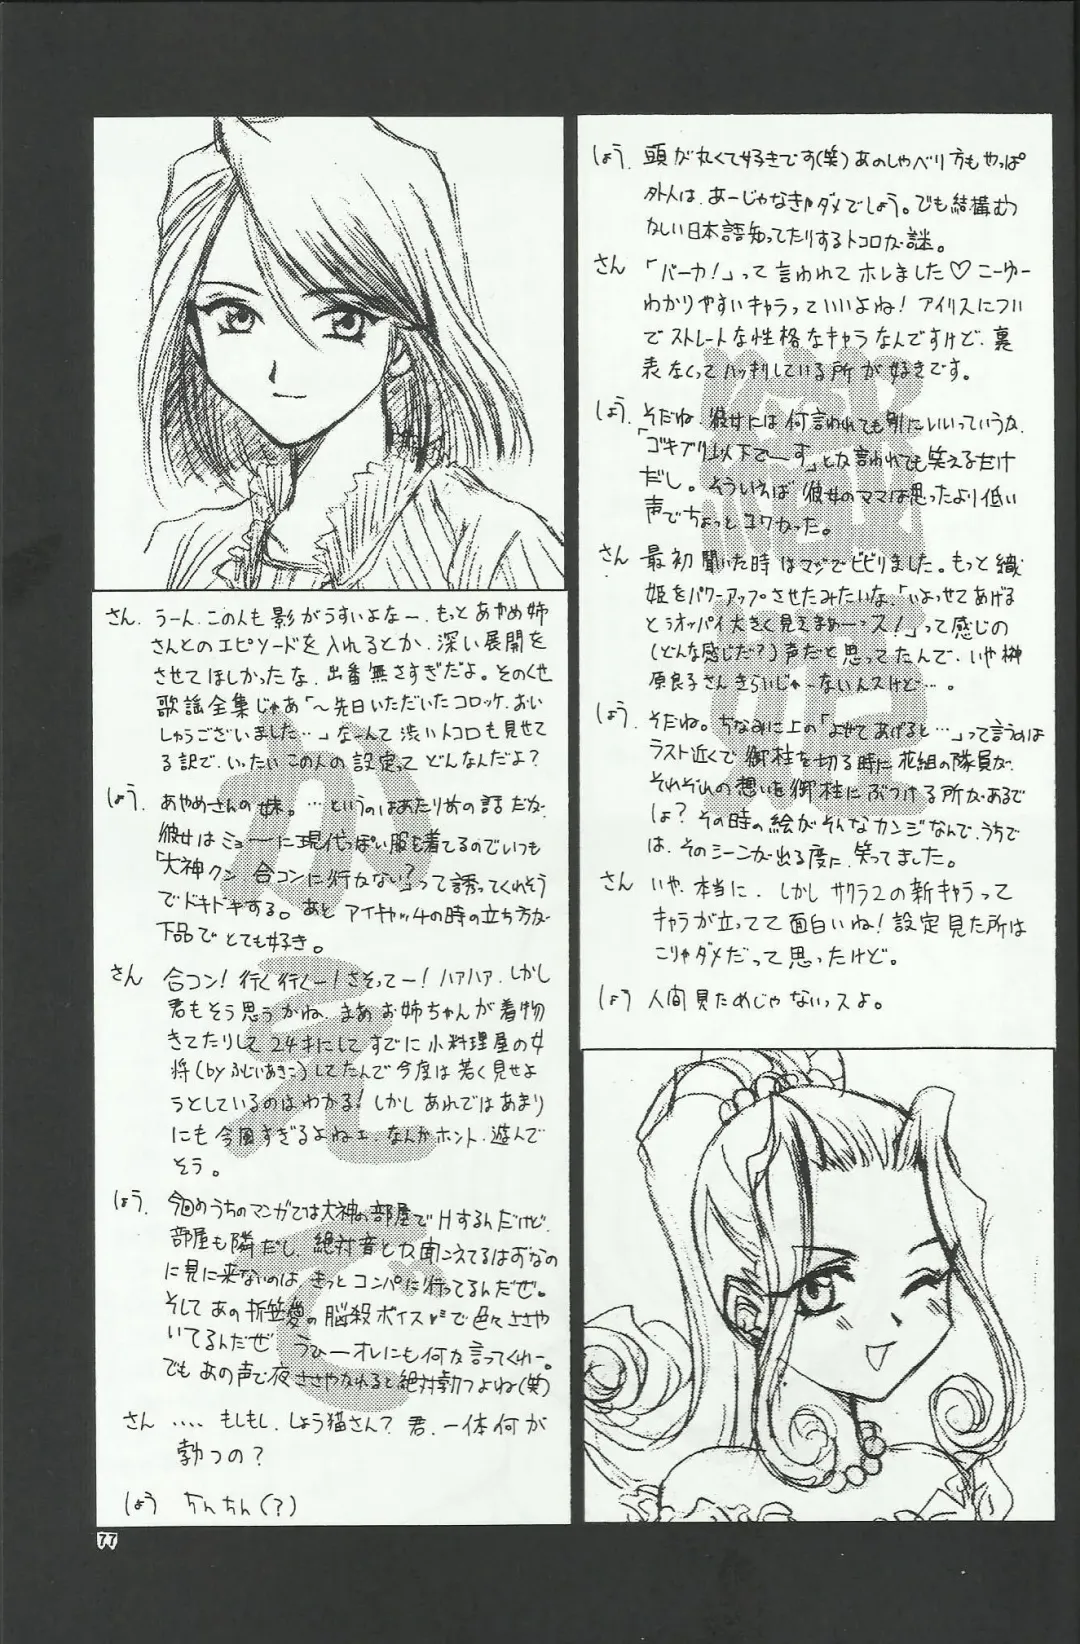 しょう. 頭が丸くて好きです(笑)あのしゃべり方もやっぱ
外人は、あーじゃなきゃダメでしょう。でも結構むつ
かしい日本語知ってたりするトコロが謎。
さん 「バーカ!」って言われてホレました♡こーゆー
わかりやすいキャラっていいよね! アイリスについ
でストレートな性格なキャラなんですけど、裏
表なくってハッキリしている所が好きです。
しょう. そだね、彼女には何言われても別にいいっていうか、
「ゴキブリ以下でーす」とか言われても笑えるだけ
だし。そういえば彼女のママは思ったより低い
声でちょっとコワかった。
さん 最初聞いた時はマジでビビりました。もっと織
姫をパワーアップさせたみたいな、「いよっせてあげる
とうオッパイ大きく見えまぁーっス!」って感じの
(どんな感じだ?)声だと思ってたんで、いや榊
原良子さんきらいじゃーないんスけど…。
しょう. そだね。ちなみに上の「よせてあげると…」って言うのは
ラスト近くで御柱を切る時に花組の隊員が、
それぞれの想いを御柱にぶつける所があるで
しょ? その時の絵がそんなカンジなんで、うちで
は、そのシーンが出る度に、笑ってました。
さん いや、本当に、しかしサクラ2の新キャラって
キャラが立ってて面白いね!設定見た所は
こりゃダメだって思ったけど。
しょう 人間見ためじゃないっスよ。
織姫
さん. うーん、この人も影がうすいよなー、もっとあやめ姉
さんとのエピソードを入れるとか、深い展開を
させてほしかったな、出番無さすぎだよ。そのくせ
歌謡全集じゃあ「〜先日いただいたコロッケ、おい
しゅうございました…」なーんて渋いトコロも見せて
る訳で、いったいこの人の設定ってどんなんだよ?
しょう. あやめさんの妹。…というのはあたり前の話だが、
彼女はミョーに現代っぽい服を着てるのでいつも
「大神クン 合コンに行かない?」って誘ってくれそう
でドキドキする。あと アイキャッチの時の立ち方が
下品でとても好き。
さん 合コン!行く行くー!さそってー!ハァハァ、しかし
君もそう思うかね、まぁお姉ちゃんが着物
きてたりして24才にしてすでに小料理屋の女
将(byふじいあきこ)してたんで今度は若く見せよ
うとしているのはわかる!しかしあれではあまり
にも今風すぎるよねェ、なんかホント、遊んで
そう。
しょう. 今回のうちのマンガでは大神の部屋でHするんだけど、
部屋も隣だし、絶対音とか聞こえてるはずなの
に見に来ないのは、きっとコンパに行ってるんだぜ。
そしてあの折笠愛の脳殺ボイスで色々ささや
いてるんだぜ うひーオレにも何か言ってくれー。
でもあの声で夜ささやかれると絶対勃つよね(笑)
さん ....もしもし、しょう猫さん? 君、一体何が
勃つの?
しょう ちんちん(?)
かえで
77